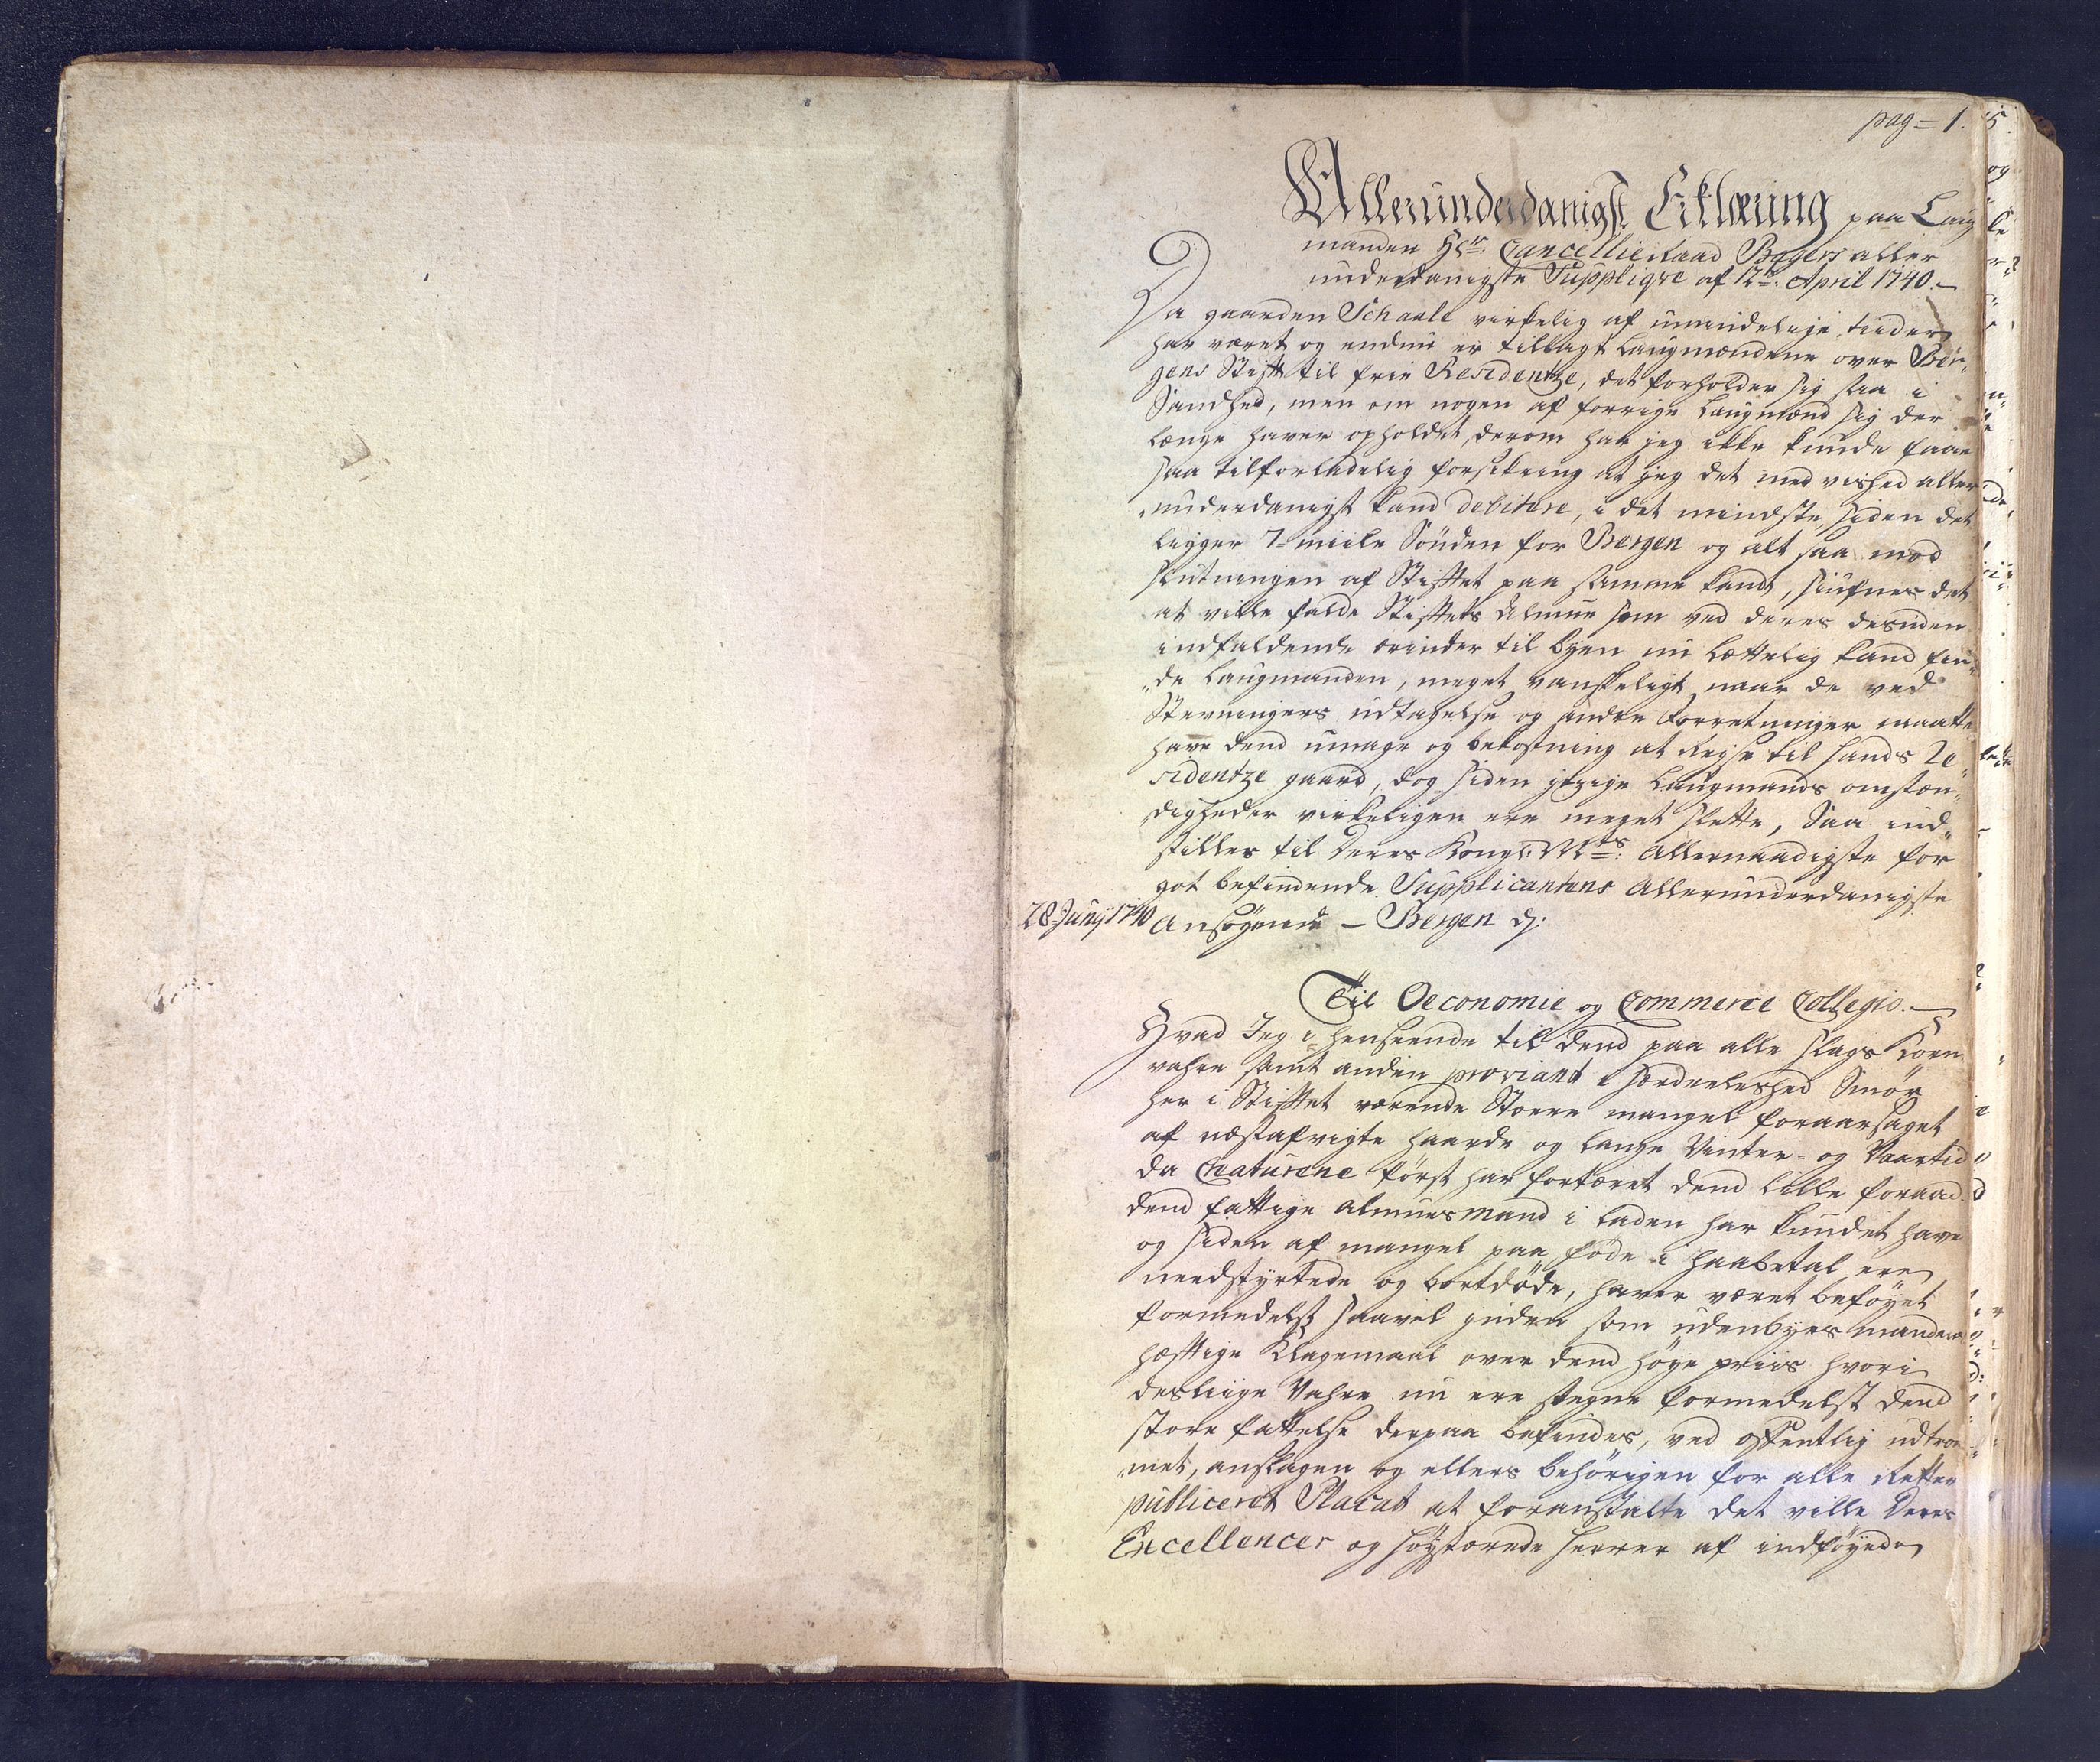 pag = 1.
Allerunderdanigst Erklæring paa Laug
manden Hr. Cancellieraad Bøgers aller
underdanigste Suppliqve af 12te April 1740. –
Da gaarden Schaale virkelig af umindelige tiider
har været og endnu er tillagt Laugmændene over Ber,,
gens Stift til frie Residentze, det forholder sig saa i
Sandhed, men om nogen af forrige Laugmænd sig der
længe haver opholdet, derom har jeg ikke kunde faae
saa tilforladelig forsikring at jeg det med vished aller
,,underdanigst kand debitere, i det mindste, siden det
ligger 7 miile Sönden for Bergen og alt saa mod
slutningen af Stiftet paa samme kandt, siufnes det
at ville falde Stiftets Almue som ved deres desuden
indfaldende ærinder til byen nu lættelig kand fin,,
,,de Laugmanden, meget vanskeligt, naar de ved
Stevningers udtagelse og andre forretninger maatte
have dend umage og bekostning at Reyse til hands Re,,
sidentze gaard, dog siden itzige Laugmands omstæn,,
digheder virkeligen ere meget slette, Saa ind,,
stilles til Deres Kongl: Mts: Allernaadigste for
got befindende Supplicantens Allerunderdanigste
28 Junÿ 1740 Ansögende – Bergen d:
Til Oeconomie og Commerce Collegio. –
Hvad Jeg i henseende til dend paa alle slags Korn
vahre samt anden proviant i særdeleshed Smör
her i Stiftet værende Store mangel foraarsaget
af næstafvigte haarde og lange Vinter- og Vaartid
da Creaturene först har fortæret dend lille foraad
dend fattige almues Mand i laden har kundet have
og siden af mangel paa föde i haabetal ere
needstyrtede og bortdöde, haver været beföyet
formedelst saavel inden som udenbyes mands
hæftige Klagemaal over dend höye priis hvori
desliige Vahre nu ere stegne formedelst dend
store fattelse derpaa befindes, ved offentlig udtrom
,,met, anslagen og ellers behörigen for alle Retter
publiceret Placat at foranstalte det ville Deres
Excellencer og höystærede Herrer af indföyede